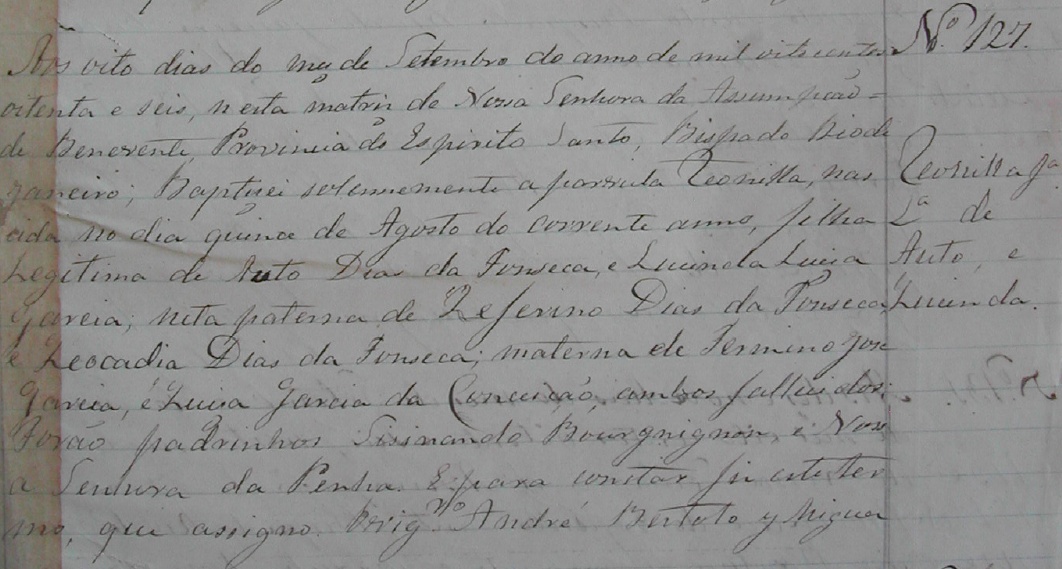 Nº 127.
Aos oito dias do mez de Setembro do anno de mil oito centos
oitenta e seis, n'esta matriz de Nossa Senhora da Assumpção
de Benevente, Provincia do Espirito Santo, Bispado Rio de
Janeiro; Baptizei solennemente a parvula Zeonilla, nas
cida no dia quinze de Agosto do corrente anno, filha
Legitima de Auto Dias da Fonseca, e Lucinda Lucia
Garcia; neta paterna de Zeferino Dias da Fonseca,
e Leocadia Dias da Fonseca; materna de Fermino José
Garcia, e Luiza Garcia da Conceição, ambos fallecidos;
Forão padrinhos Sisinando Bourguignon, e Noss
a Senhora da Penha. E para constar fiz este ter
mo, que assigno. Vrigº André
Zeonilla fª
Lª de
Auto, e
Lucinda.